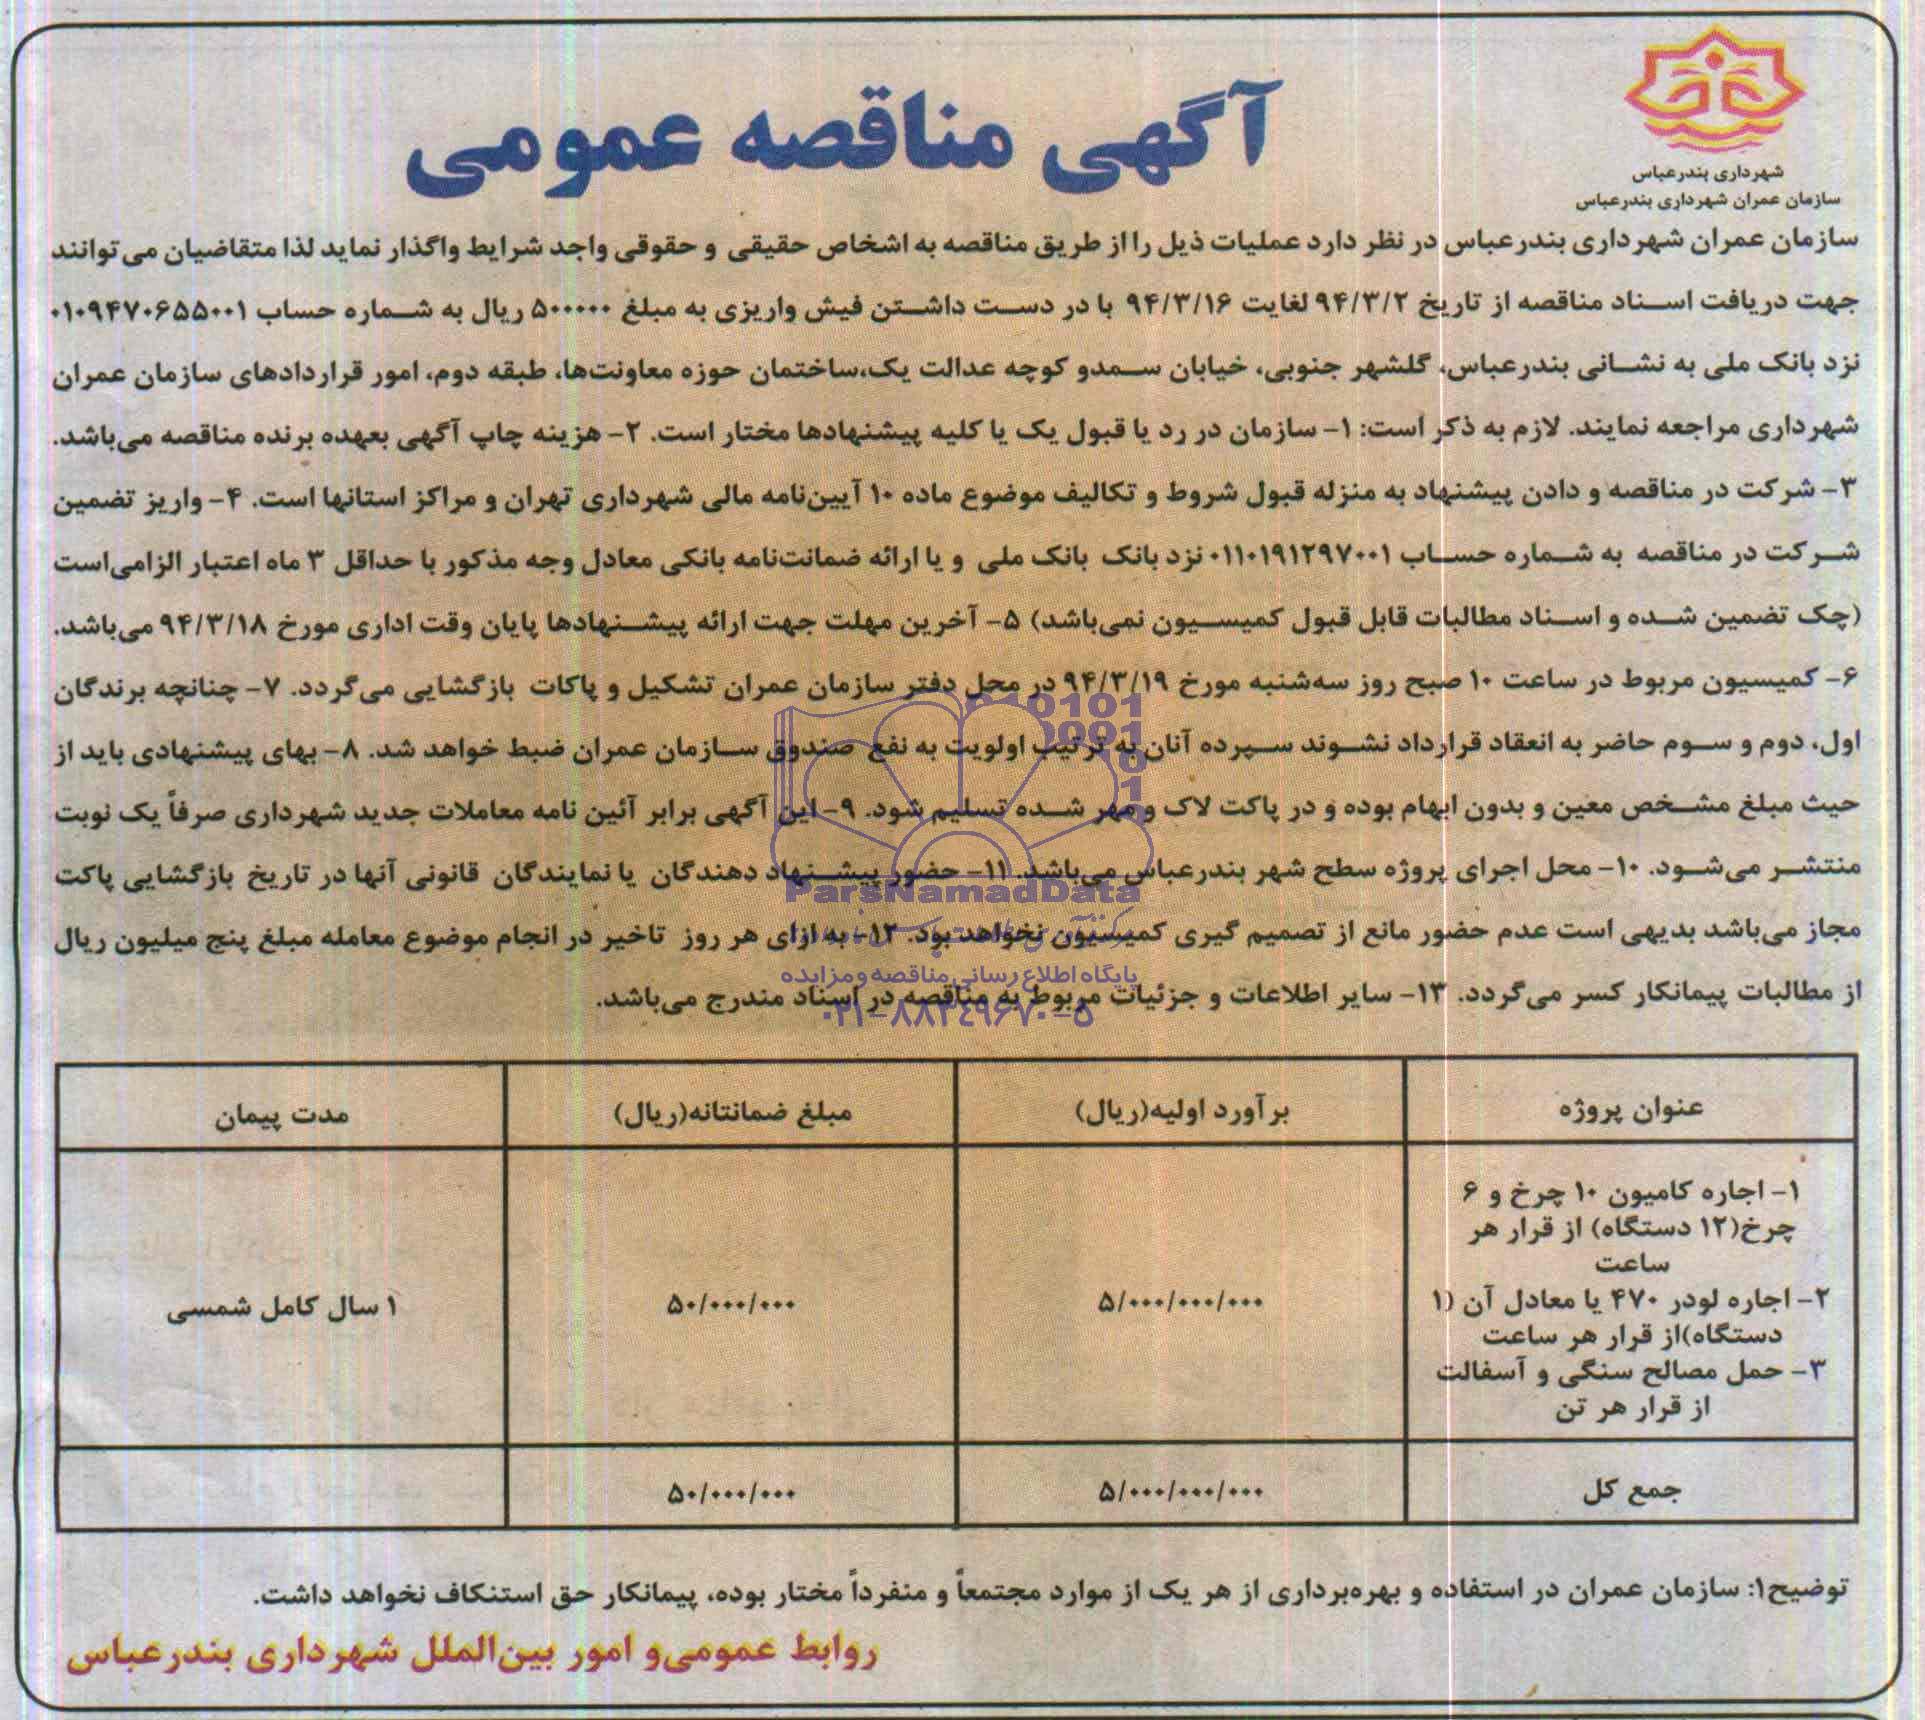 شهرداری بندرعباس
سازمان عمران شهرداری بندرعباس
آگهی مناقصه عمومی
سازمان عمران شهرداری بندرعباس در نظر دارد عملیات ذیل را از طریق مناقصه به اشخاص حقیقی و حقوقی واجد شرایط واگذار نماید لذا متقاضیان می‌توانند
جهت دریافت اسناد مناقصه از تاریخ ۹۴/۳/۲ لغایت ۹۴/۳/۱۶ با در دست داشتن فیش واریزی به مبلغ ۵۰۰۰۰۰ ریال به شماره حساب ۰۱۰۹۴۷۰۶۵۵۰۰۱
نزد بانک ملی به نشانی بندرعباس، گلشهر جنوبی، خیابان سمدو کوچه عدالت یک،ساختمان حوزه معاونت‌ها، طبقه دوم، امور قراردادهای سازمان عمران
شهرداری مراجعه نمایند. لازم به ذکر است: ۱- سازمان در رد یا قبول یک یا کلیه پیشنهادها مختار است. ۲- هزینه چاپ آگهی بعهده برنده مناقصه می‌باشد.
۳- شرکت در مناقصه و دادن پیشنهاد به منزله قبول شروط و تکالیف موضوع ماده ۱۰ آیین‌نامه مالی شهرداری تهران و مراکز استانها است. ۴- واریز تضمین
شرکت در مناقصه به شماره حساب ۰۱۱۰۱۹۱۲۹۷۰۰۱ نزد بانک بانک ملی و یا ارائه ضمانت‌نامه بانکی معادل وجه مذکور با حداقل ۳ ماه اعتبار الزامی‌است
(چک تضمین شده و اسناد مطالبات قابل قبول کمیسیون نمی‌باشد) ۵- آخرین مهلت جهت ارائه پیشنهادها پایان وقت اداری مورخ ۹۴/۳/۱۸ می‌باشد.
۶- کمیسیون مربوط در ساعت ۱۰ صبح روز سه‌شنبه مورخ ۹۴/۳/۱۹ در محل دفتر سازمان عمران تشکیل و پاکات بازگشایی می‌گردد. ۷- چنانچه برندگان
اول، دوم و سوم حاضر به انعقاد قرارداد نشوند سپرده آنان به ترتیب اولویت به نفع صندوق سازمان عمران ضبط خواهد شد. ۸- بهای پیشنهادی باید از
حیث مبلغ مشخص معین و بدون ابهام بوده و در پاکت لاک و مهر شده تسلیم شود. ۹- این آگهی برابر آئین نامه معاملات جدید شهرداری صرفاً یک نوبت
منتشر می‌شود. ۱۰- محل اجرای پروژه سطح شهر بندرعباس می‌باشد. ۱۱- حضور پیشنهاد دهندگان یا نمایندگان قانونی آنها در تاریخ بازگشایی پاکت
مجاز می‌باشد بدیهی است عدم حضور مانع از تصمیم گیری کمیسیون نخواهد بود. ۱۲- به ازای هر روز تاخیر در انجام موضوع معامله مبلغ پنج میلیون ریال
از مطالبات پیمانکار کسر می‌گردد. ۱۳- سایر اطلاعات و جزئیات مربوط به مناقصه در اسناد مندرج می‌باشد.
ParsNamadData
پایگاه اطلاع رسانی مناقصه و مزایده
۰۲۱-۸۸۳۴۹۶۷۰-۵
عنوان پروژه برآورد اولیه(ریال) مبلغ ضمانتانه(ریال) مدت پیمان
۱- اجاره کامیون ۱۰ چرخ و ۶
چرخ(۱۲ دستگاه) از قرار هر
ساعت
۲- اجاره لودر ۴۷۰ یا معادل آن (۱
دستگاه)از قرار هر ساعت
۳- حمل مصالح سنگی و آسفالت
از قرار هر تن
۵/۰۰۰/۰۰۰/۰۰۰ ۵۰/۰۰۰/۰۰۰ ۱ سال کامل شمسی
جمع کل ۵/۰۰۰/۰۰۰/۰۰۰ ۵۰/۰۰۰/۰۰۰
توضیح۱: سازمان عمران در استفاده و بهره‌برداری از هر یک از موارد مجتمعاً و منفرداً مختار بوده، پیمانکار حق استنکاف نخواهد داشت.
روابط عمومی‌و امور بین‌الملل شهرداری بندرعباس